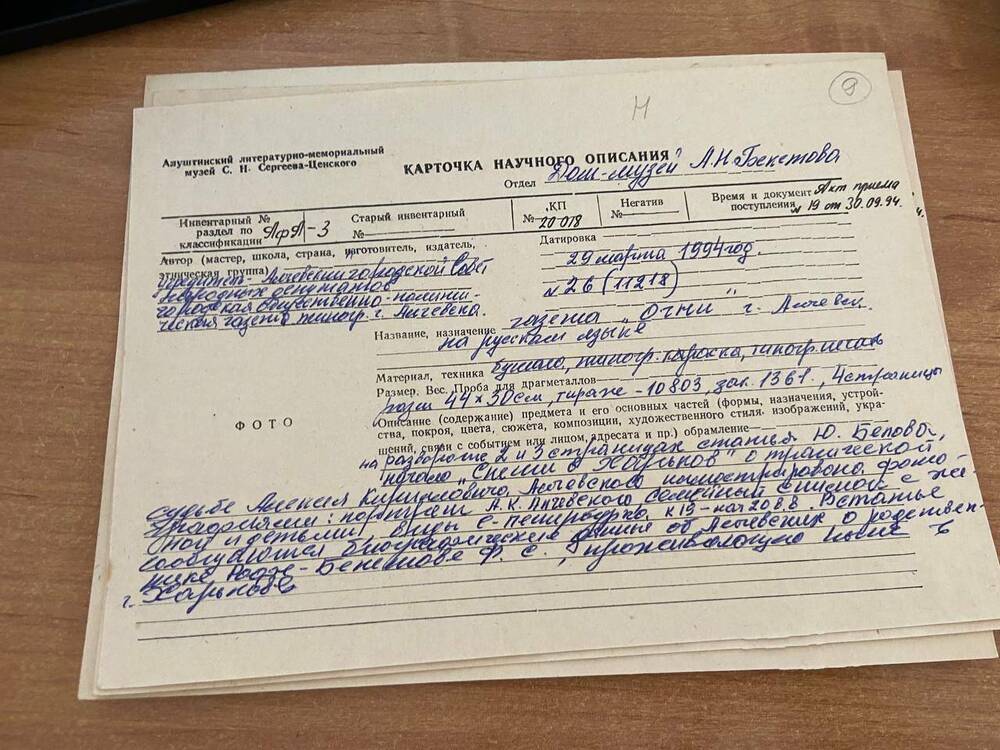 9
Н
Алуштинский литературно-мемориальный
музей С. Н. Сергеева-Ценского
КАРТОЧКА НАУЧНОГО ОПИСАНИЯ
Отдел Дом-музей А.Н. Бекетова
Инвентарный №
раздел по
классификации
ЯфЛ-3
Старый инвентарный
№
КП
№ 20 018
Негатив
№
Время и документ Акт приема
поступления № 19 от 30.09.94 г.
Автор (мастер, школа, страна, изготовитель, издатель,
этническая группа)
учредитель - Алчевский городской Совет
народных депутатов
городская общественно-полити-
ческая газета типогр. г. Алчевска.
Датировка
29 марта 1994 год.
№ 26 (11218)
Название, назначение газета "Огни" г. Алчевск.
на русском языке
Материал, техника бумага, типогр. краска, типогр. печать
Размер. Вес. Проба для драгметаллов
разм 44 × 30 см, тираж - 10803, зак. 1361, 4 страницы
Описание (содержание) предмета и его основных частей (формы, назначения, устрой-
ства, покроя, цвета, сюжета, композиции, художественного стиля. изображений, укра-
шений, связи с событием или лицом, адресата и пр.) обрамление
на развороте 2 и 3 страницах статья Ю. Белова,
начало "Спеши в Харьков" о трагической
судьбе Алексея Кирилловича Алчевского иллюстрировано фото-
графиями: портрет А.К. Алчевского семейный снимок с же-
ной и детьми, виды с-петербурга к 19-нач 20 в.в. В статье
сообщаются биографические данные об Алчевских о родствен-
нике Бекетове Ф. С., проживающю ныне в
г. Харькове
ФОТО